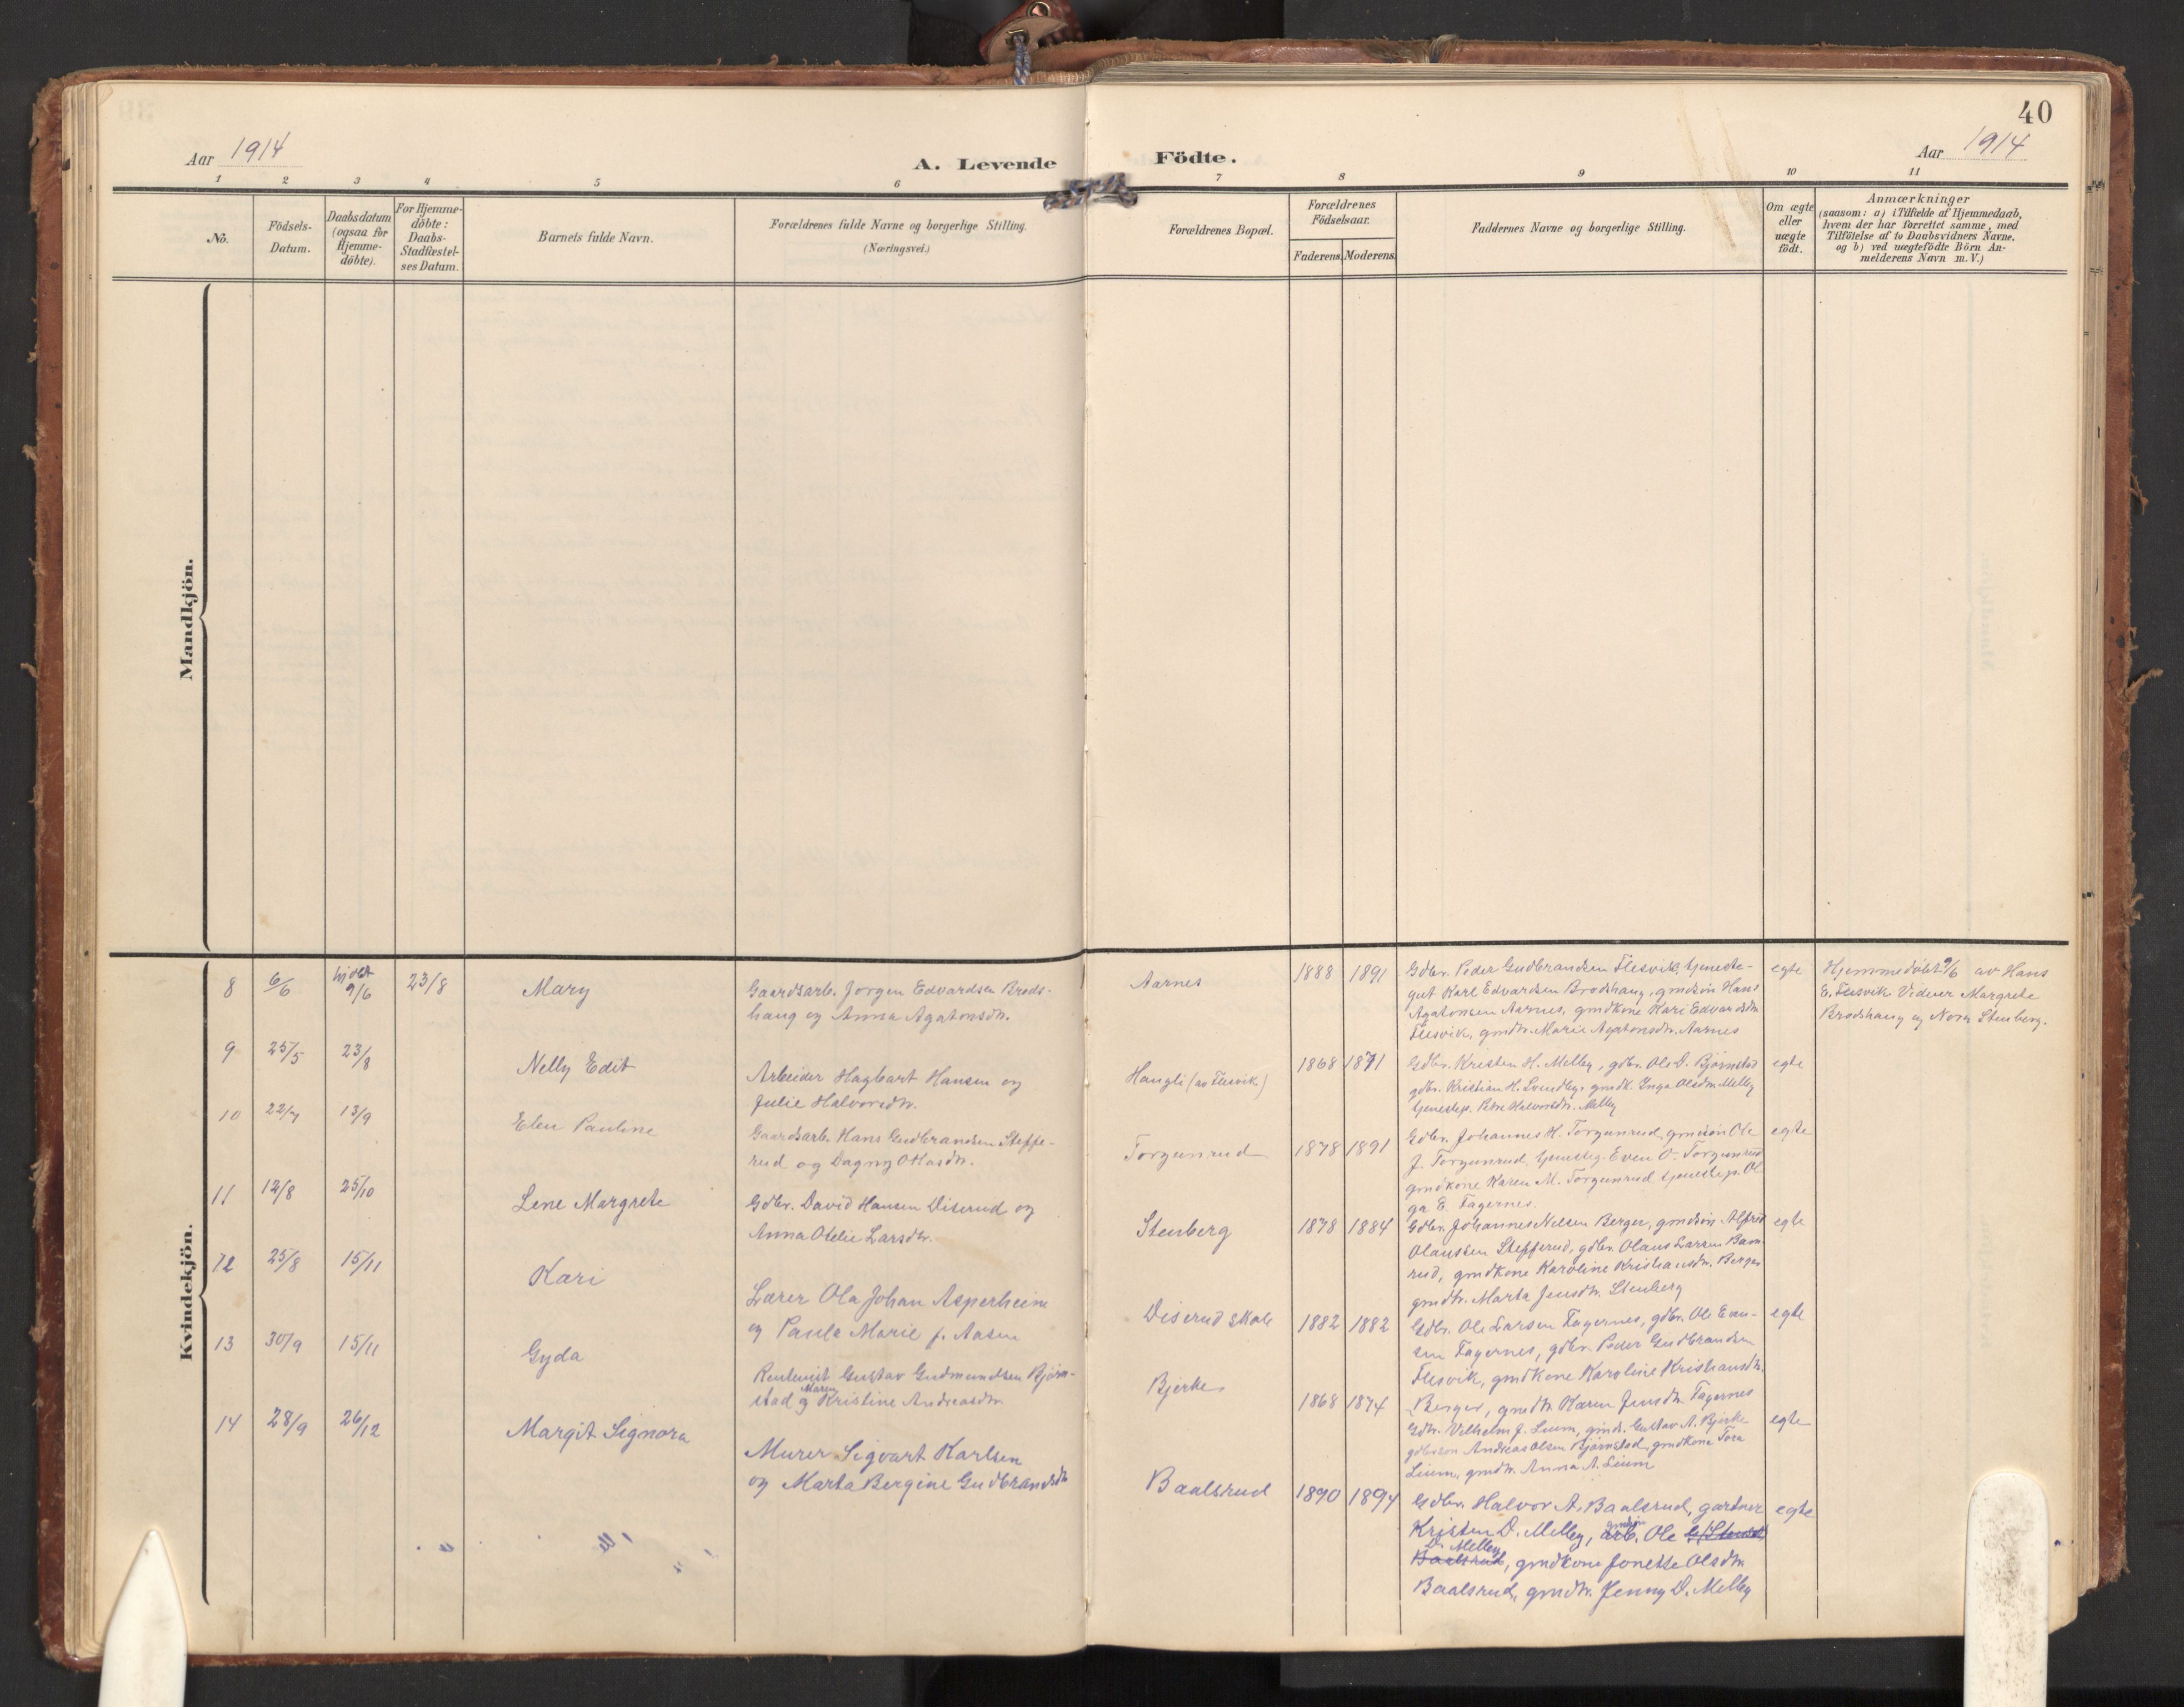 40
Aar 1914
A. Levende Födte.
Aar 1914
1 2 3 4 5 6 7 8 9 10 11
No.
Födsels-
Datum.
Daabsdatum
(ogsaa for
Hjemme-
döbte).
For Hjemme-
döbte:
Daabs-
Stadfæstel-
ses Datum.
Barnets fulde Navn.
Forældrenes fulde Navne og borgerlige Stilling.
(Næringsvei.)
Forældrenes Bopæl.
Forældrenes
Födselsaar.
Faderens. Moderens.
Faddernes Navne og borgerlige Stilling.
Om ægte
eller
uægte
födt.
Anmærkninger
(saasom: a) i Tilfælde af Hjemmedaab,
hvem der har forrettet samme, med
Tilföielse af to Daabsvidners Navne,
og b) ved uægtefödte Börn An-
melderens Navn m.V.)
Mandkjön.
Kvindekjön.
8 6/6 hjdbt 9/6 23/8 Mary
Gaardsarb. Jørgen Edvardsen Brods-
haug og Anna Agatonsdtr.
Aarnes 1888 1891
Gdbr. Peder Gudbrandsen Flesvik, tjeneste-
gut Karl Edvardsen Brodshaug, gmdsøn Hans
Agatonsen Aarnes, gmdkone Kari Edvardsdtr.
Flesvik, gmdtr. Marie Agatonsdtr. Aarnes
egte
Hjemmedøbt 9/6 av Hans
E. Flesvik. Vidner Margrete
Brodshaug og Nora Stenberg.
9 25/5 23/8 Nelly Edit
Arbeider Hagbart Hansen og
Julie Halvorsdtr.
Haugli (av Flesvik) 1868 1871
Gdbr. Kristen H. Melby, gdbr. Ole D. Bjørnstad
gdbr. Kristian H. Svendby, gmdk. Inga Olsdtr. Melby
tjenestep. Petra Halvorsdtr. Melby
egte
10 22/7 13/9 Elen Pauline
Gaardsarb. Hans Gudbrandsen Steffe-
rud og Dagny Ottosdtr.
Torgunrud 1878 1891
Gdbr. Johannes H. Torgunrud, gmdsøn Ole
J. Torgunrud, tjenesteg. Even O. Torgunrud
gmdkone Karen M. Torgunrud tjenestep. Ol
ga E. Fagernes.
egte
11 12/8 25/10 Lene Margrete
Gdbr. David Hansen Diserud og
Anna Otelie Larsdtr.
Stenberg 1878 1884
Gdbr. Johannes Nelsen Berger, gmdsøn Alfred
Olaussen Stefferud, gdbr. Olaus Larsen Bam-
rud, gmdkone Karoline Kristiansdtr. Berger
gmdtr. Marta Jensdtr. Stenberg
egte
12 25/8 15/11 Kari
Lærer Ola Johan Asperheim
og Paula Marie f. Aasen
Diserud skole 1882 1882
Gdbr. Ole Larsen Fagernes, gdbr. Ole Evan-
sen Fagernes, gdbr. Peder Gudbrandsen
Flesvik, gmdkone Karoline Kristiansdtr.
Berger, gmdtr. Karen Jensdtr. Fagernes
egte
13 30/9 15/11 Gyda
Rentenist Gustav Gudmundsen Bjørn-
stad og Maren Kristine Andreasdtr.
Bjerke 1868 1874
Gdbr. Vilhelm J. Lium, gmds. Gustav A. Bjerke
gdbrsøn Andreas Olsen Bjørnstad, gmdkone Tora
Lium, gmdtr. Anna A. Lium
egte
14 28/9 26/12 Margit Signora
Murer Sigvart Karlsen
og Marta Bergine Gudbrandsdtr
Baalsrud 1890 1894
Gdbr. Halvor A. Baalsrud, gartner
Kristen D. Melby, gmdsøn arb. Ole
D. Melby
Baalsrud, gmdkone Jonette Olsdtr
Baalsrud, gmdtr. Jenny D. Melby
egte